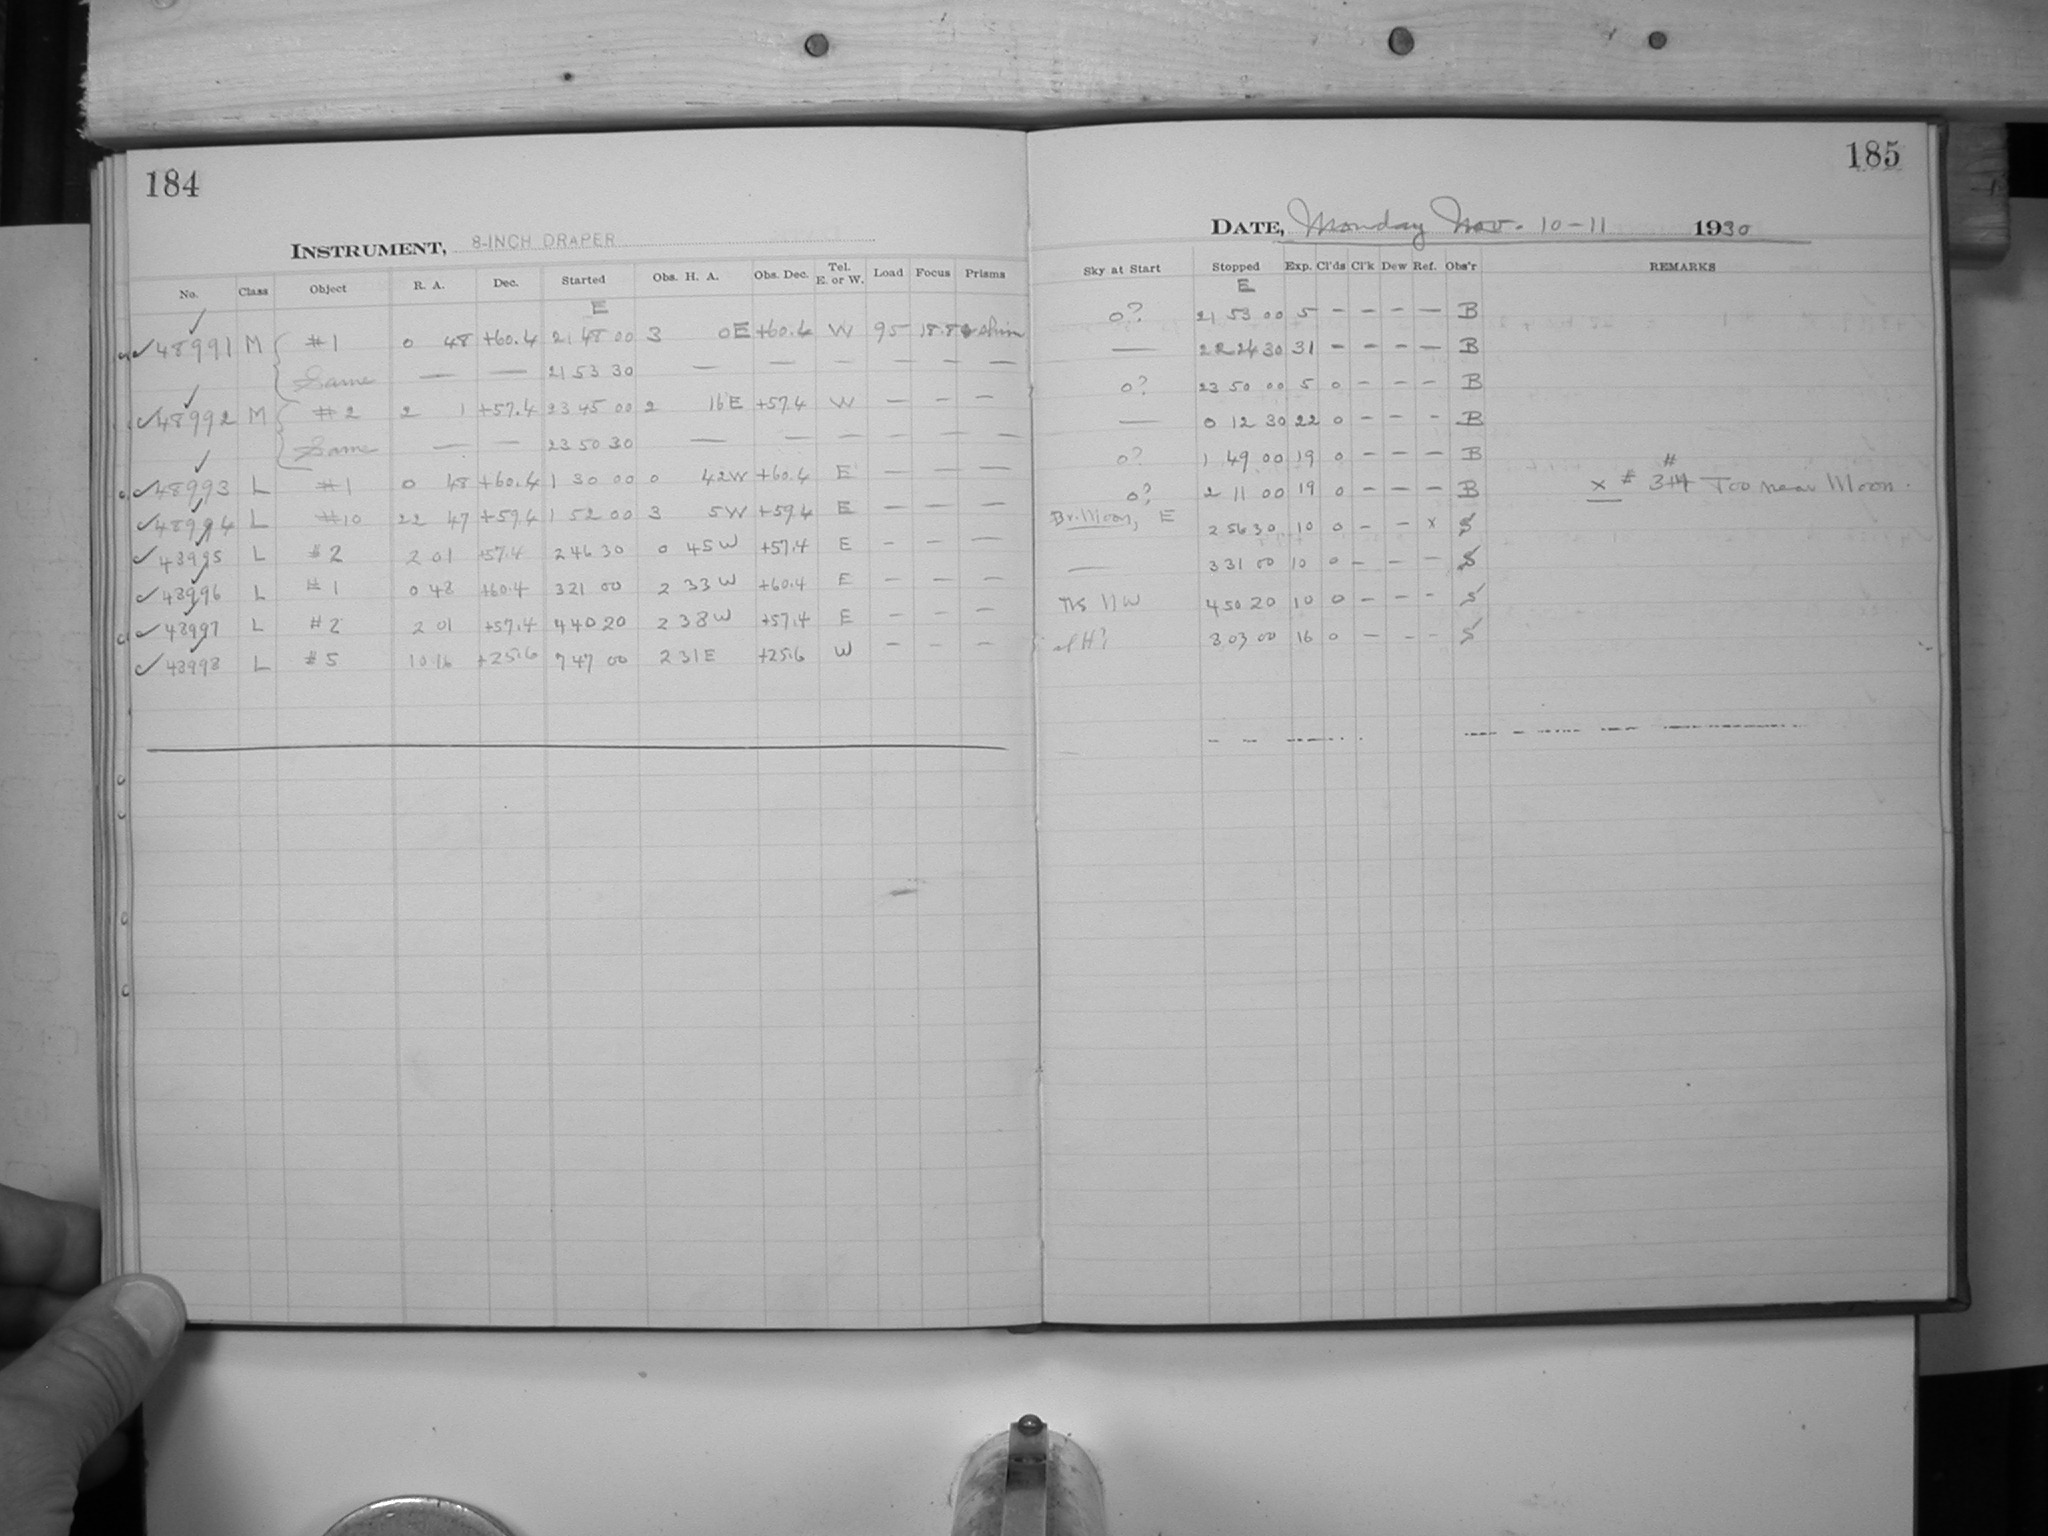 184
INSTRUMENT, 8-INCH DRAPER
No. Class Object R. A. Dec. Started Obs. H. A. Obs. Dec. Tel. E. or W. Load Focus Prisms
E
48991 M #1 0 48 +60.4 21 48 00 3 0E +60.4 W 95 18.8
Same — — 21 53 30 — — — — — —
48992 M #2 2 1 +57.4 23 45 00 2 16E +57.4 W — — —
Same — — 23 50 30 — — — — — —
48993 L #1 0 48 +60.4 1 30 00 0 42W +60.4 E — — —
48994 L #10 22 47 +59.4 1 52 00 3 5W +59.4 E — — —
48995 L #2 2 01 +57.4 2 46 30 0 45W +57.4 E — — —
48996 L #1 0 48 +60.4 3 21 00 2 33W +60.4 E — — —
48997 L #2 2 01 +57.4 4 40 20 2 38W +57.4 E — — —
48998 L #5 10 16 +25.6 7 47 00 2 31E +25.6 W — — —
185
DATE, Monday Nov. 10-11 1930
Sky at Start Stopped Exp. Cl'ds Cl'k Dew Ref. Obs'r REMARKS
E
0? 21 53 00 5 — — — — B
— 22 24 30 31 — — — — B
0? 23 50 00 5 0 — — — B
— 0 12 30 22 0 — — — B
0? 1 49 00 19 0 — — — B
0? 2 11 00 19 0 — — — B x # 3+#4 Too near Moon.
Br. Moon, E 2 56 30 10 0 — — x S
— 3 31 00 10 0 — — — S
NW 4 50 20 10 0 — — — S
8 03 00 16 0 — — — S